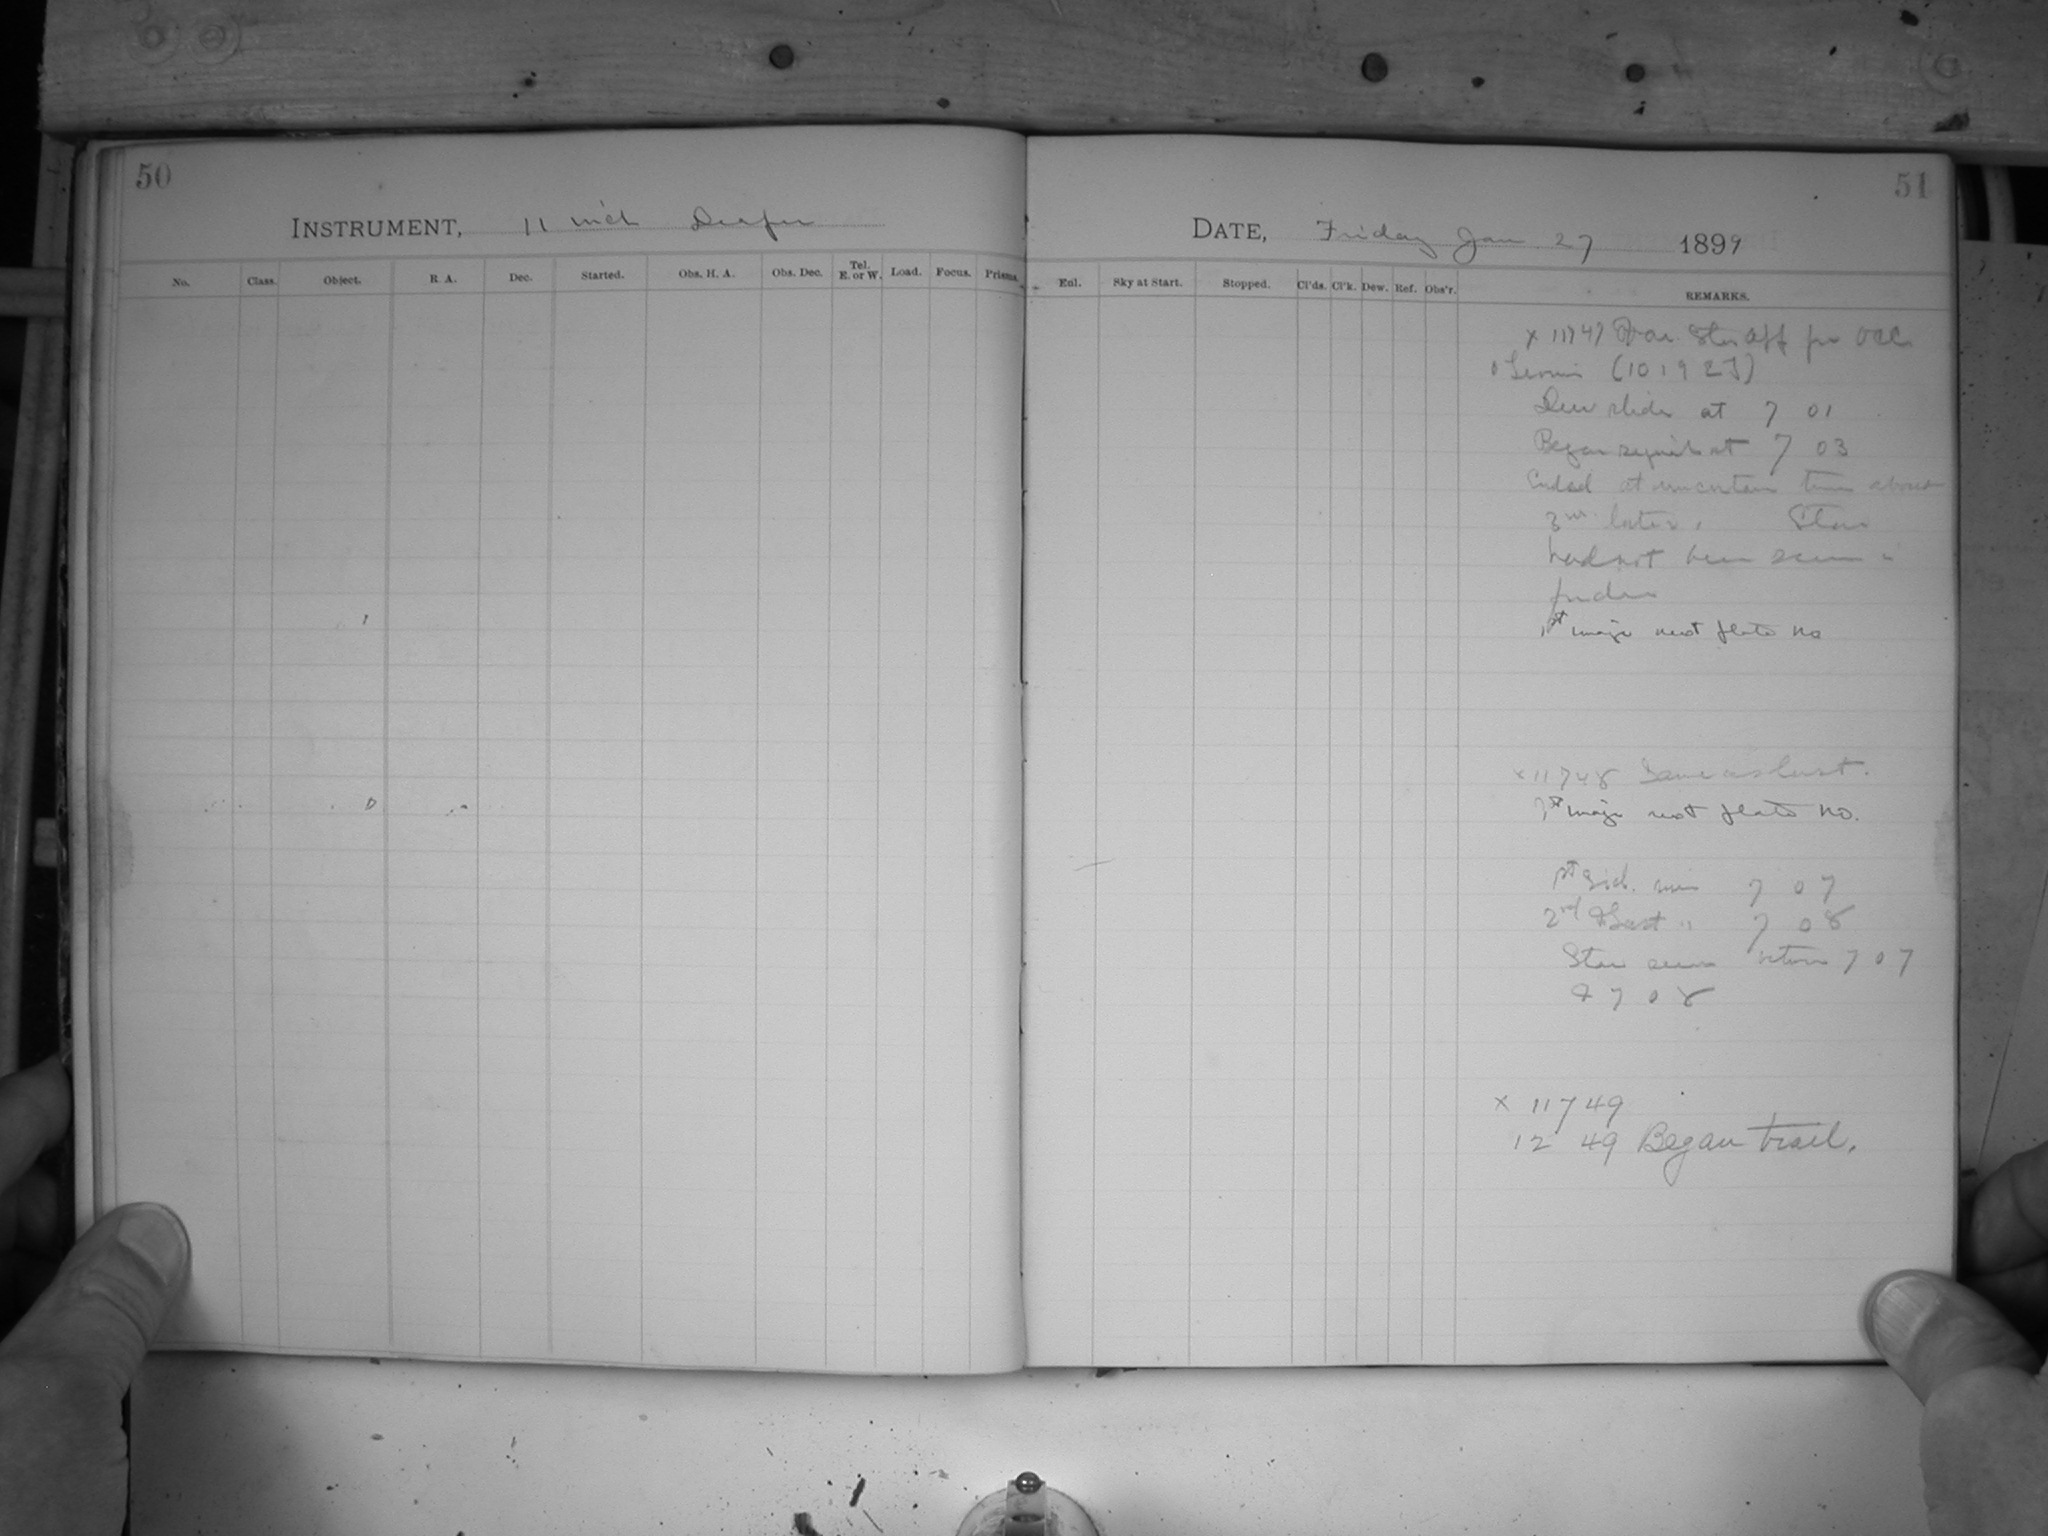 50
INSTRUMENT, 11 inch Draper
No. Class. Object. R. A. Dec. Started. Obs. H. A. Obs. Dec. Tel. E. or W. Load. Focus. Prisms.
51
DATE, Friday Jan 27 1899
Enl. Sky at Start. Stopped. Cl'ds. Cl'k. Dew. Ref. Obs'r. REMARKS.
x 11747
Leonis (10 19 25)
Drew slide at 7 01
Began at 7 03
Ended at uncertain time about
3m later. Star
had not been seen in
finder
1st image next plate no
x 11748 Same as last.
1st image next plate no.
1st Sid. min 7 07
2nd & last " 7 08
Star seen between 7 07
& 7 08
x 11749
12 49 Began trail.